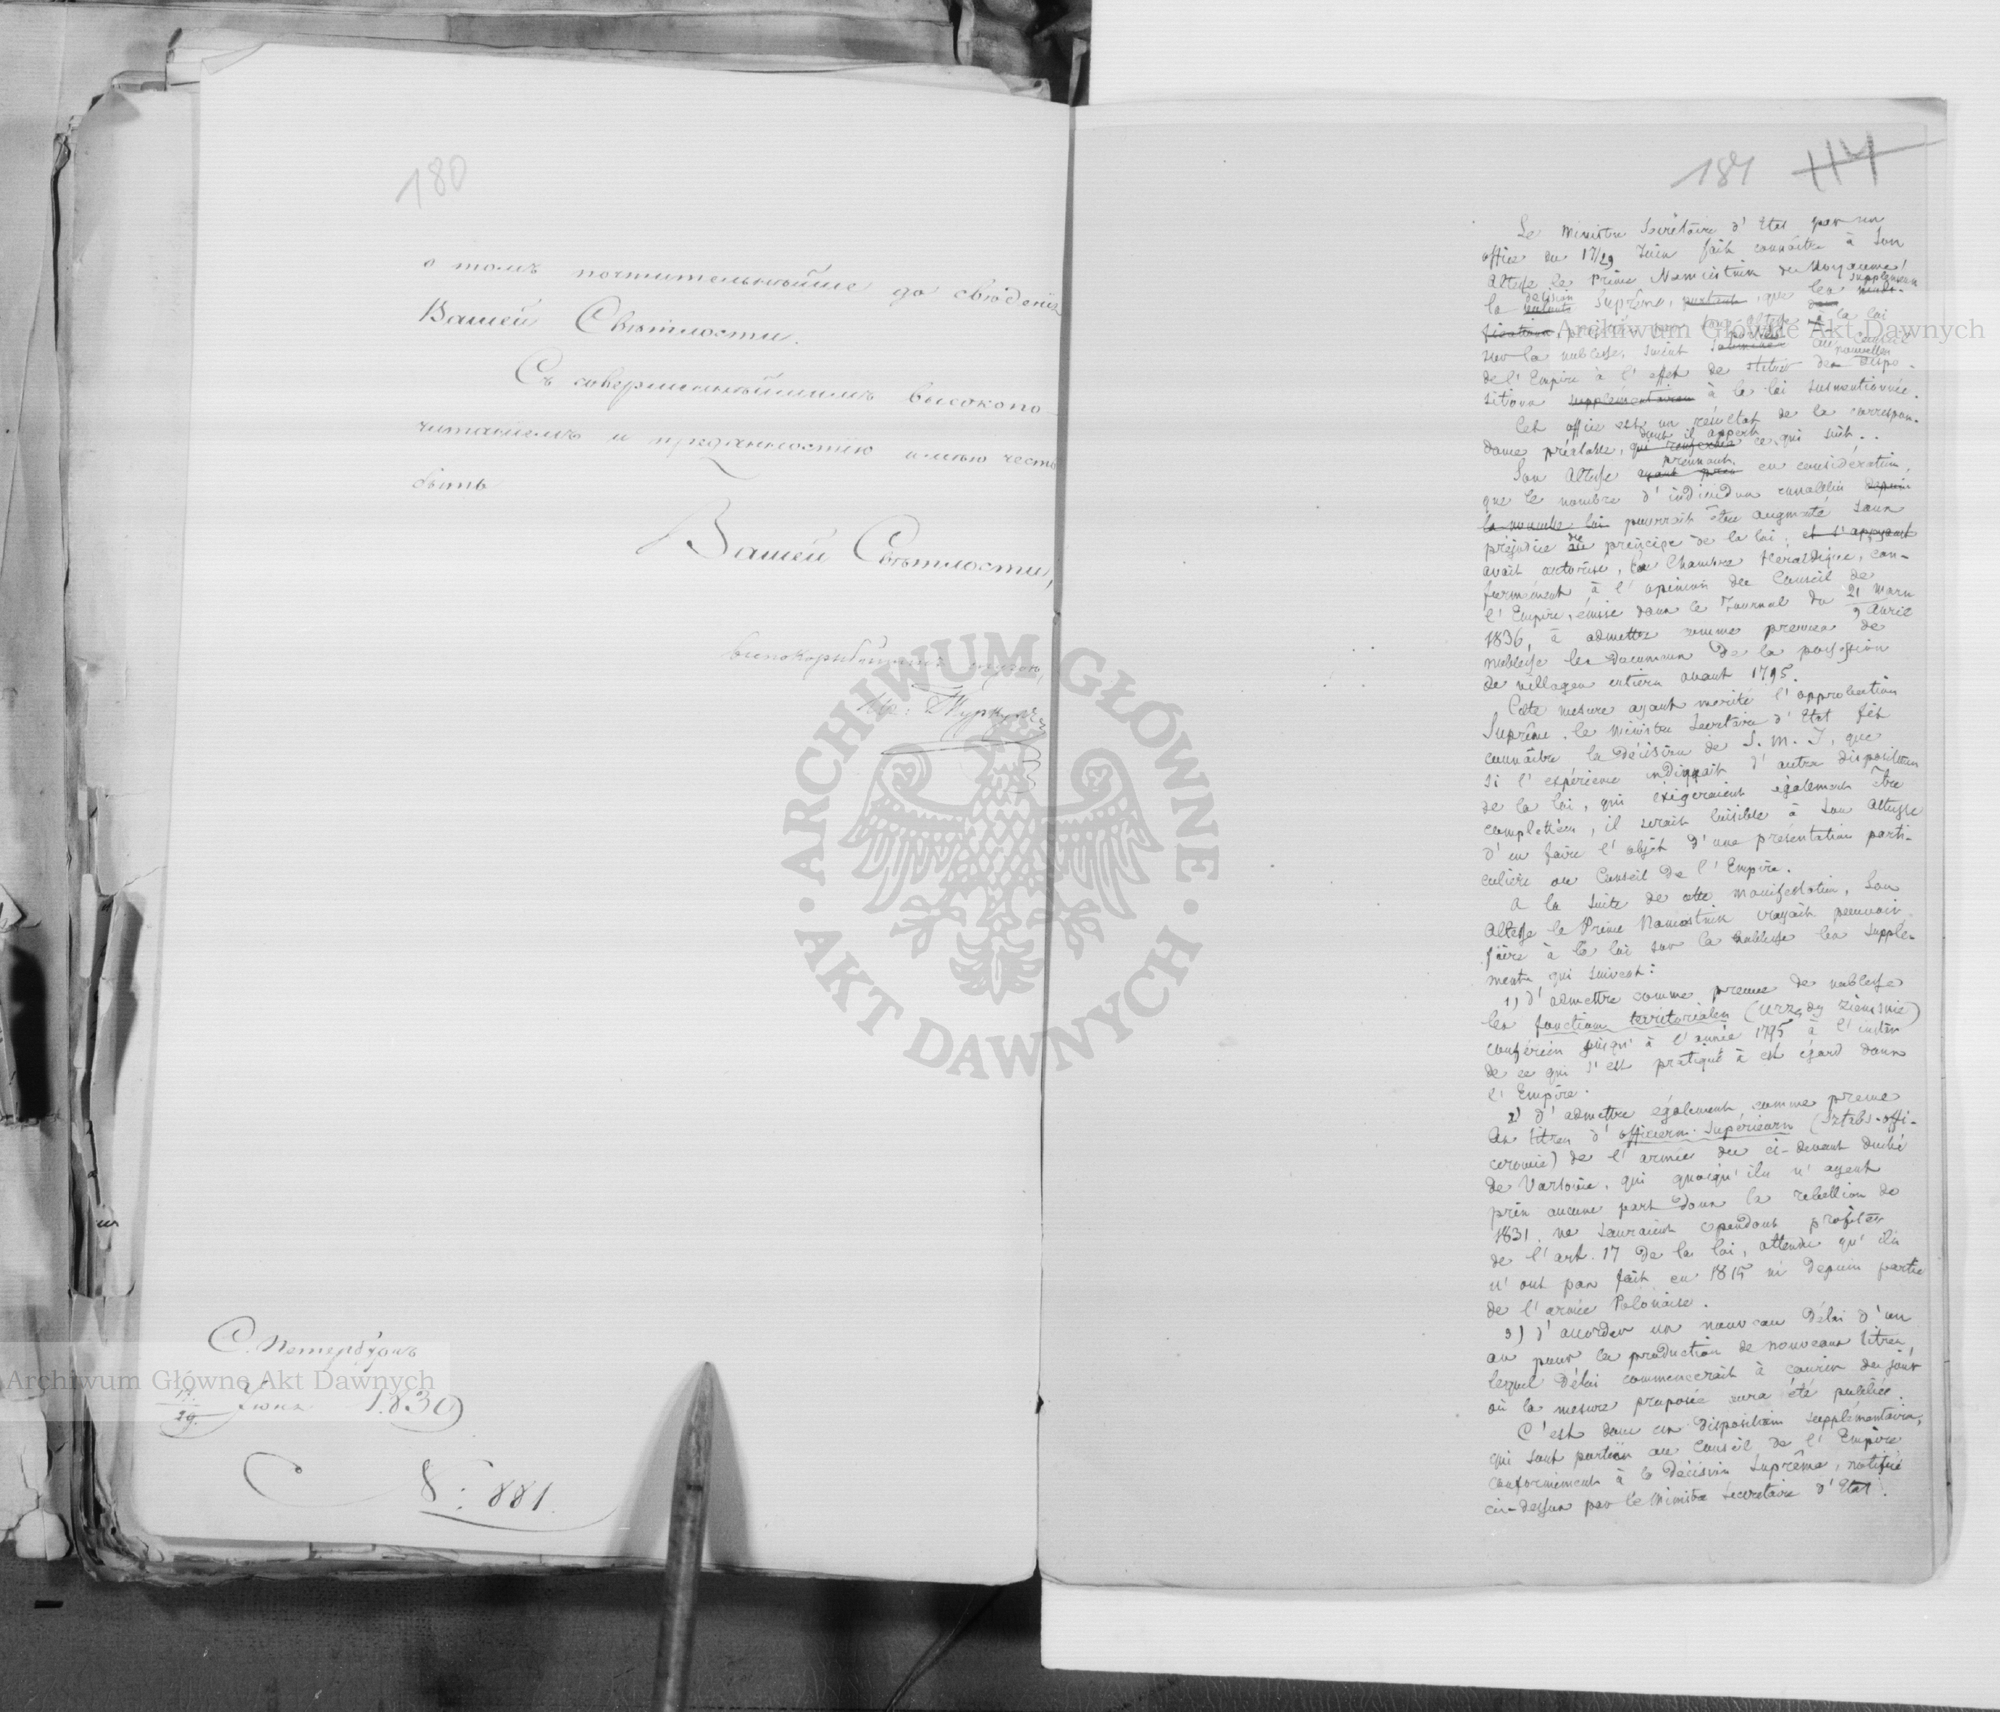 180
о томъ почтительнѣйше до свѣдѣнія
Вашей Свѣтлости.
Съ совершеннѣйшимъ высокопо-
читаніемъ и преданностію имѣю честь
быть
Вашей Свѣтлости,
всепокорнѣйшимъ слугою,
С. Петербургъ
17/29. Іюня 1839
№: 881.
181 117
Le Ministre Secrétaire d'Etat par un
office du 17/29 Juin fait connaître à Son
Altesse le Prince Namiestnik du Royaume
la décision Suprême, que les supplémens
à la loi
sur la noblesse, soient portés au Conseil
de l'Empire à l'effet de statuer de nouvelles dispo-
sitions supplémentaires à la loi susmentionnée.
Cet office est un résultat de la correspon-
dance préalable, dont il appert ce qui suit..
Son Altesse prennant en considération,
que le nombre d'individus
la nouvelle loi pourrait être augmenté sans
préjudice du principe de la loi; et s'appuyant
avait autorisé, la Chambre Héraldique, con-
formément à l'opinion du Conseil de
l'Empire, émise dans le Journal du 21 Mars / 9 Avril
1836, à admettre comme preuves de
noblesse les documens de la possession
de villages entiers avant 1795.
Cette mesure ayant mérité l'approbation
Suprême, le Ministre Secrétaire d'Etat fit
connaître la Décision de S. M. I, que
si l'expérience indiquait d'autres dispositions
de la loi, qui exigeraient également être
complettées, il serait loisible à Son Altesse
d'en faire l'objet d'une présentation parti-
culière au Conseil de l'Empire.
A la suite de cette manifestation, Son
Altesse le Prince Namiestnik croyait pouvoir
faire à la loi sur la noblesse les supplé-
ments qui suivent:
1) d'admettre comme preuve de noblesse
les fonctions territoriales (urzędy ziemskie)
conférées jusqu'à l'année 1795 à l'instar
de ce qui s'est pratiqué à cet égard dans
l'Empire.
2) d'admettre également comme preuve
les titres d'officiers supérieurs (Sztabs-offi-
cerowie) de l'armée du ci-devant duché
de Varsovie, qui quoiqu'ils n'ayent
pris aucune part dans la rebellion de
1831, ne sauraient cependant profiter
de l'art. 17 de la loi, attendu qu'ils
n'ont pas fait en 1815 ni depuis partie
de l'armée Polonaise.
3) d'accorder un nouveau délai d'un
an pour la production de nouveaux titres,
lequel délai commencerait à courir du jour
où la mesure proposée aura été publiée.
C'est donc ces dispositions supplémentaires,
qui sont portées au Conseil de l'Empire
conformément à la Décision Suprême, notifiée
ci-dessus par le Ministre Secrétaire d'Etat.
ARCHIWUM GŁÓWNE AKT DAWNYCH
Archiwum Główne Akt Dawnych
Archiwum Główne Akt Dawnych